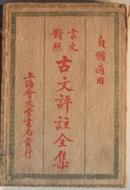 自脩適用
言文對照
古文評註全集
上海會文堂書局發行